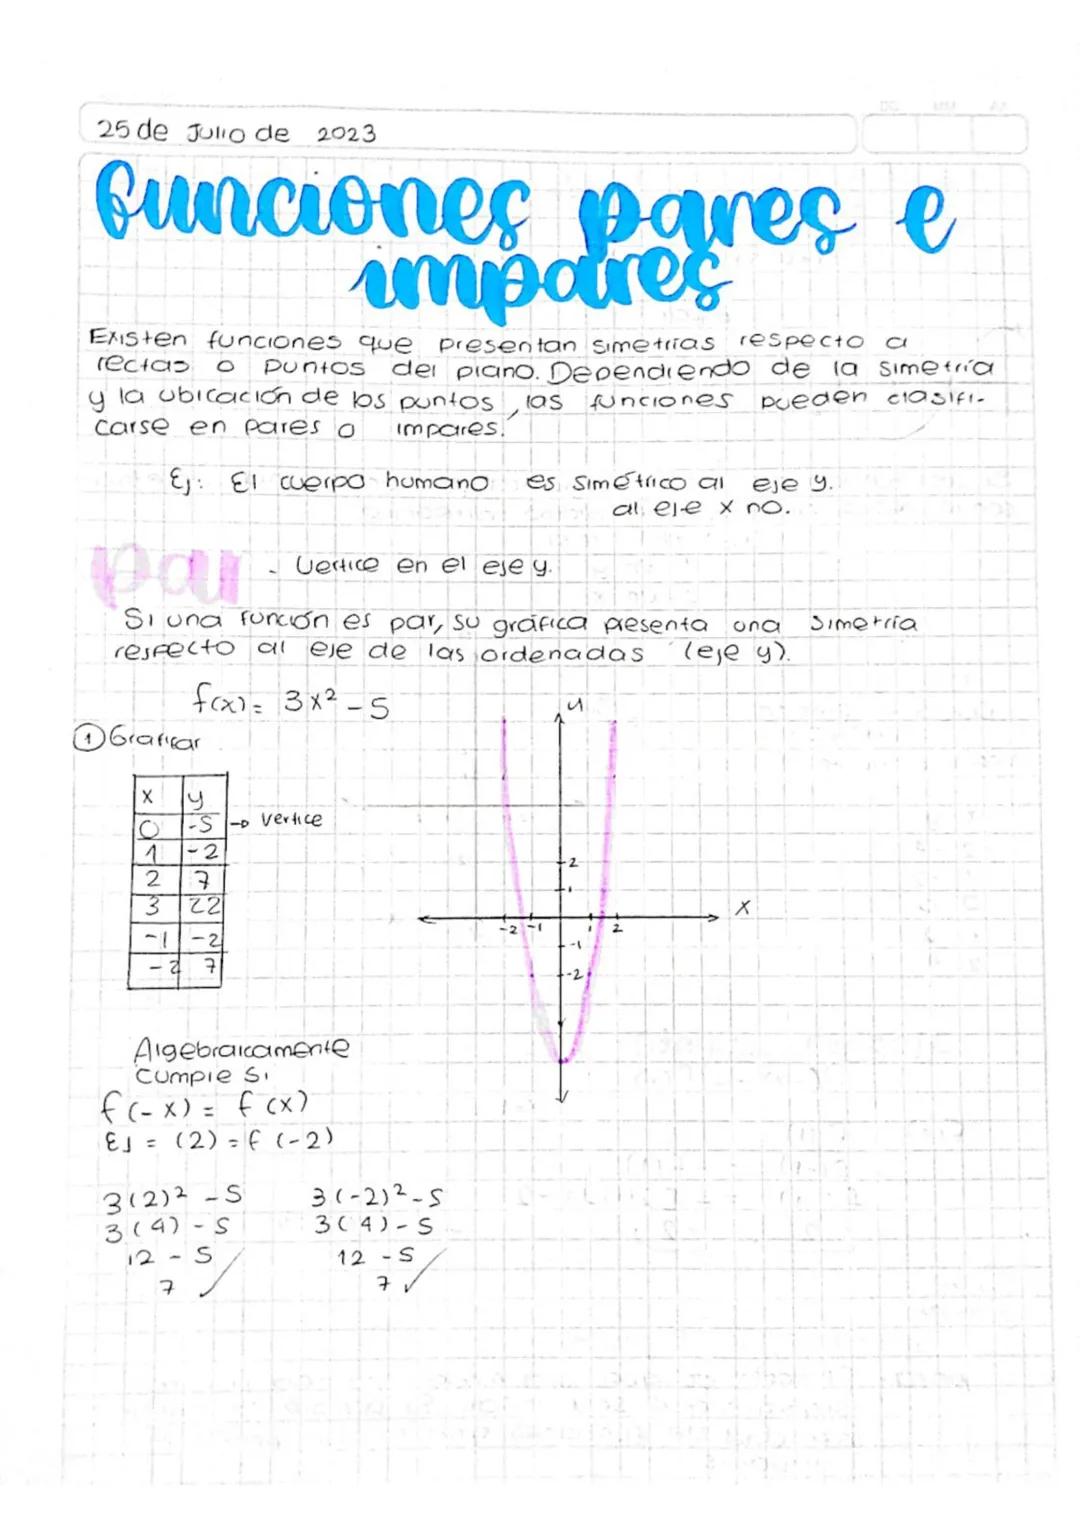 25 de Julio de 2023
funciones pares e
impares
Existen funciones que presentan simetrías respecto a
rectas o puntos del plano. Dependiendo de la simetría
y la ubicación de los puntos, las funciones pueden clasifi-
carse en pares o impares.
Ej: El cuerpo humano es simétrico al eje y.
al eje x no.
par - Vertice en el eje y.
Si una función es par, su gráfica presenta una simetría
respecto al eje de las ordenadas (eje y).
f(x) = 3x² - 5
① Graficar
x y
0 -5 → vertice
1 -2
2 7
3 22
-1 -2
-2 7
y
2
1
-2 -1 1 2 x
-1
-2
Algebraicamente
cumple si
f(-x) = f(x)
Ej = (2) = f(-2)
3(2)² - 5 3(-2)² - 5
3(4) - 5 3(4) - 5
12 - 5 12 - 5
7 ✓ 7 ✓